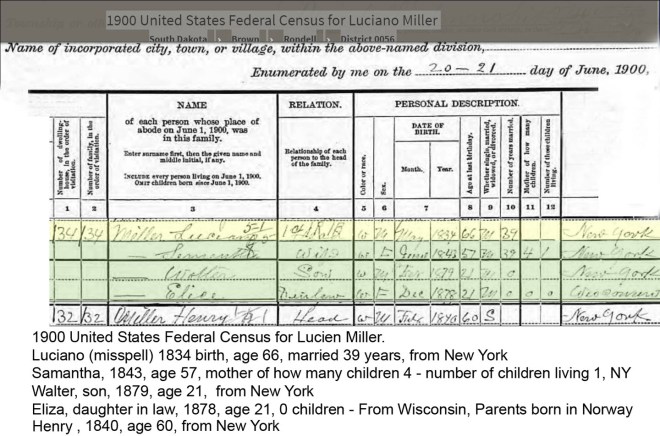 1900 United States Federal Census for Luciano Miller
South Dakota Brown Rondell District 0056
Name of incorporated city, town, or village, within the above-named division,
Enumerated by me on the 20-21 day of June, 1900,
NAME
of each person whose place of
abode on June 1, 1900, was
in this family.
Enter surname first, then the given name and
middle initial, if any.
INCLUDE every person living on June 1, 1900.
OMIT children born since June 1, 1900.
RELATION.
Relationship of each
person to the head
of the family.
PERSONAL DESCRIPTION.
DATE OF
BIRTH.
Month. Year.
Number of dwelling-
house, in the order of
visitation.
Number of family, in the
order of visitation.
Color or race.
Sex.
Age at last birthday.
Whether single, married,
widowed, or divorced.
Number of years married.
Mother of how many
children.
Number of these children
living.
1 2 3 4 5 6 7 8 9 10 11 12
134 134 Miller W M May 1834 66 M 39 New York
Samantha Wife W F June 1843 57 M 39 4 1 New York
Walter Son W M 1879 21 M 0 New York
Eliza W F Dec 1878 21 M 0 0 Wisconsin
132 132 Miller Henry Head W M July 1840 60 S New York
1900 United States Federal Census for Lucien Miller.
Luciano (misspell) 1834 birth, age 66, married 39 years, from New York
Samantha, 1843, age 57, mother of how many children 4 - number of children living 1, NY
Walter, son, 1879, age 21, from New York
Eliza, daughter in law, 1878, age 21, 0 children - From Wisconsin, Parents born in Norway
Henry , 1840, age 60, from New York